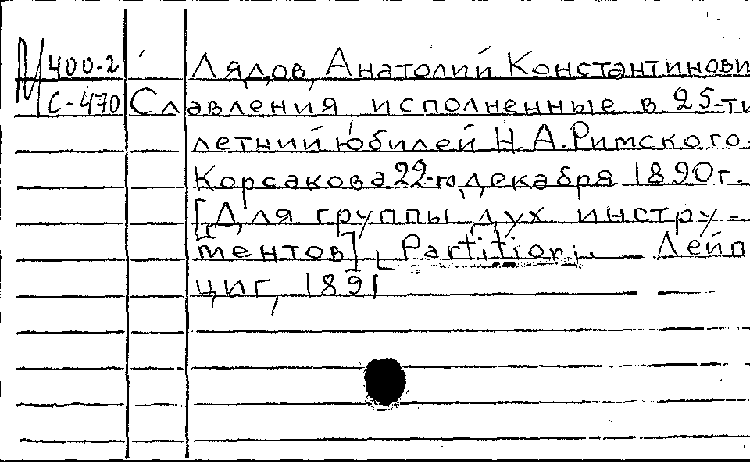 М 400-2 Лядов, Анатолий Константинови
С-470 Славления, исполненные в 25-ти
летний юбилей Н.А.Римского-
Корсакова 22-го декабря 1890г.
[Для группы дух инстру-
ментов]. Partition. Лейп
циг, 1891